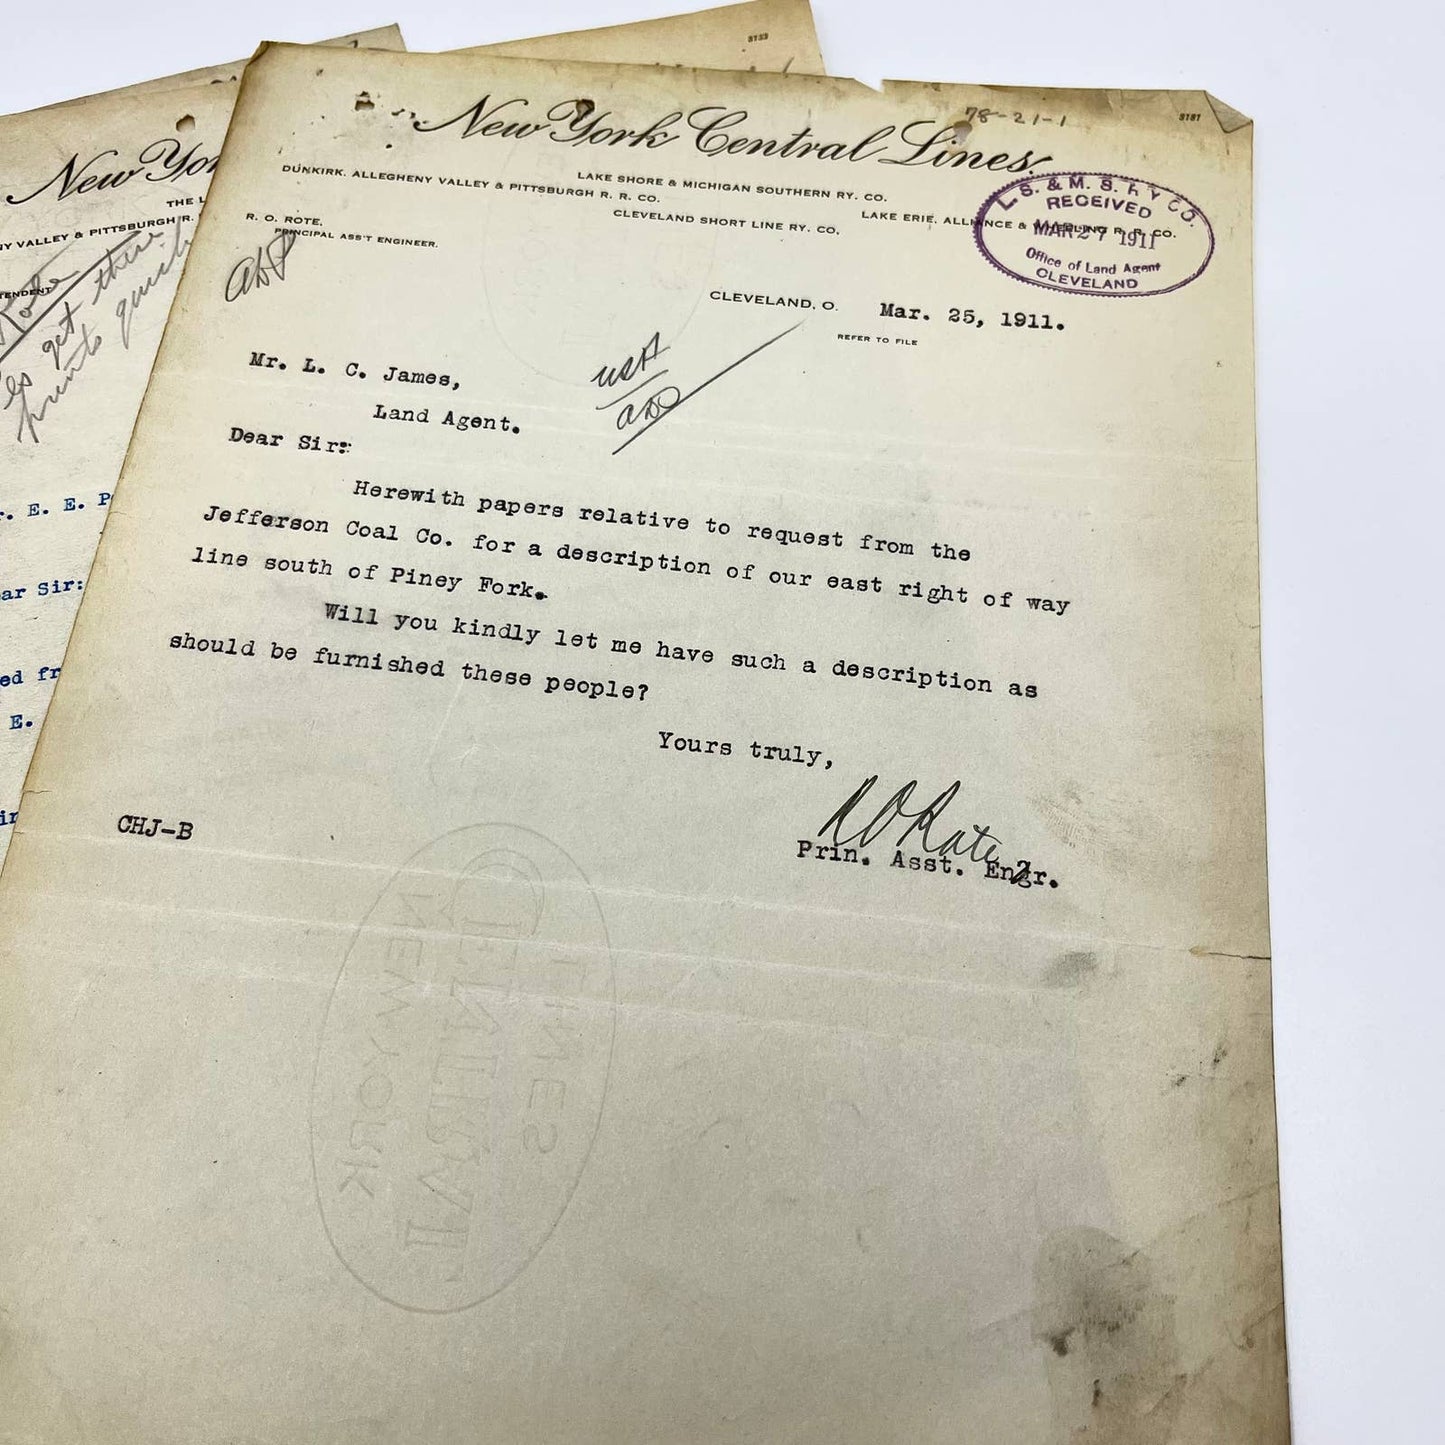 8133
New York Central Lines.
78-21-1
8181
LAKE SHORE & MICHIGAN SOUTHERN RY. CO.
DUNKIRK, ALLEGHENY VALLEY & PITTSBURGH R. R. CO.
LAKE ERIE, ALLIANCE & WHEELING R. R. CO.
CLEVELAND SHORT LINE RY. CO.
R. O. ROTE,
PRINCIPAL ASS'T ENGINEER.
L. S. & M. S. RY CO.
RECEIVED
MAR 27 1911
Office of Land Agent
CLEVELAND
CLEVELAND, O. Mar. 25, 1911.
REFER TO FILE
Mr. L. C. James,
Land Agent.
Dear Sir:
Herewith papers relative to request from the
Jefferson Coal Co. for a description of our east right of way
line south of Piney Fork.
Will you kindly let me have such a description as
should be furnished these people?
Yours truly,
R O Rote
Prin. Asst. Engr.
CHJ-B
NEW YORK
CENTRAL
LINES
New Yor
THE L
NY VALLEY & PITTSBURGH R.
TENDENT
Rote
get three
prints quick
r. E. E. P
ar Sir:
ed fr
E.